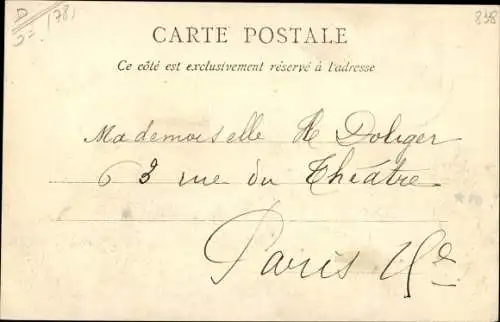 D (781
838
CARTE POSTALE
Ce côté est exclusivement réservé à l'adresse
Mademoiselle Doliger
63 rue du Théâtre
Paris